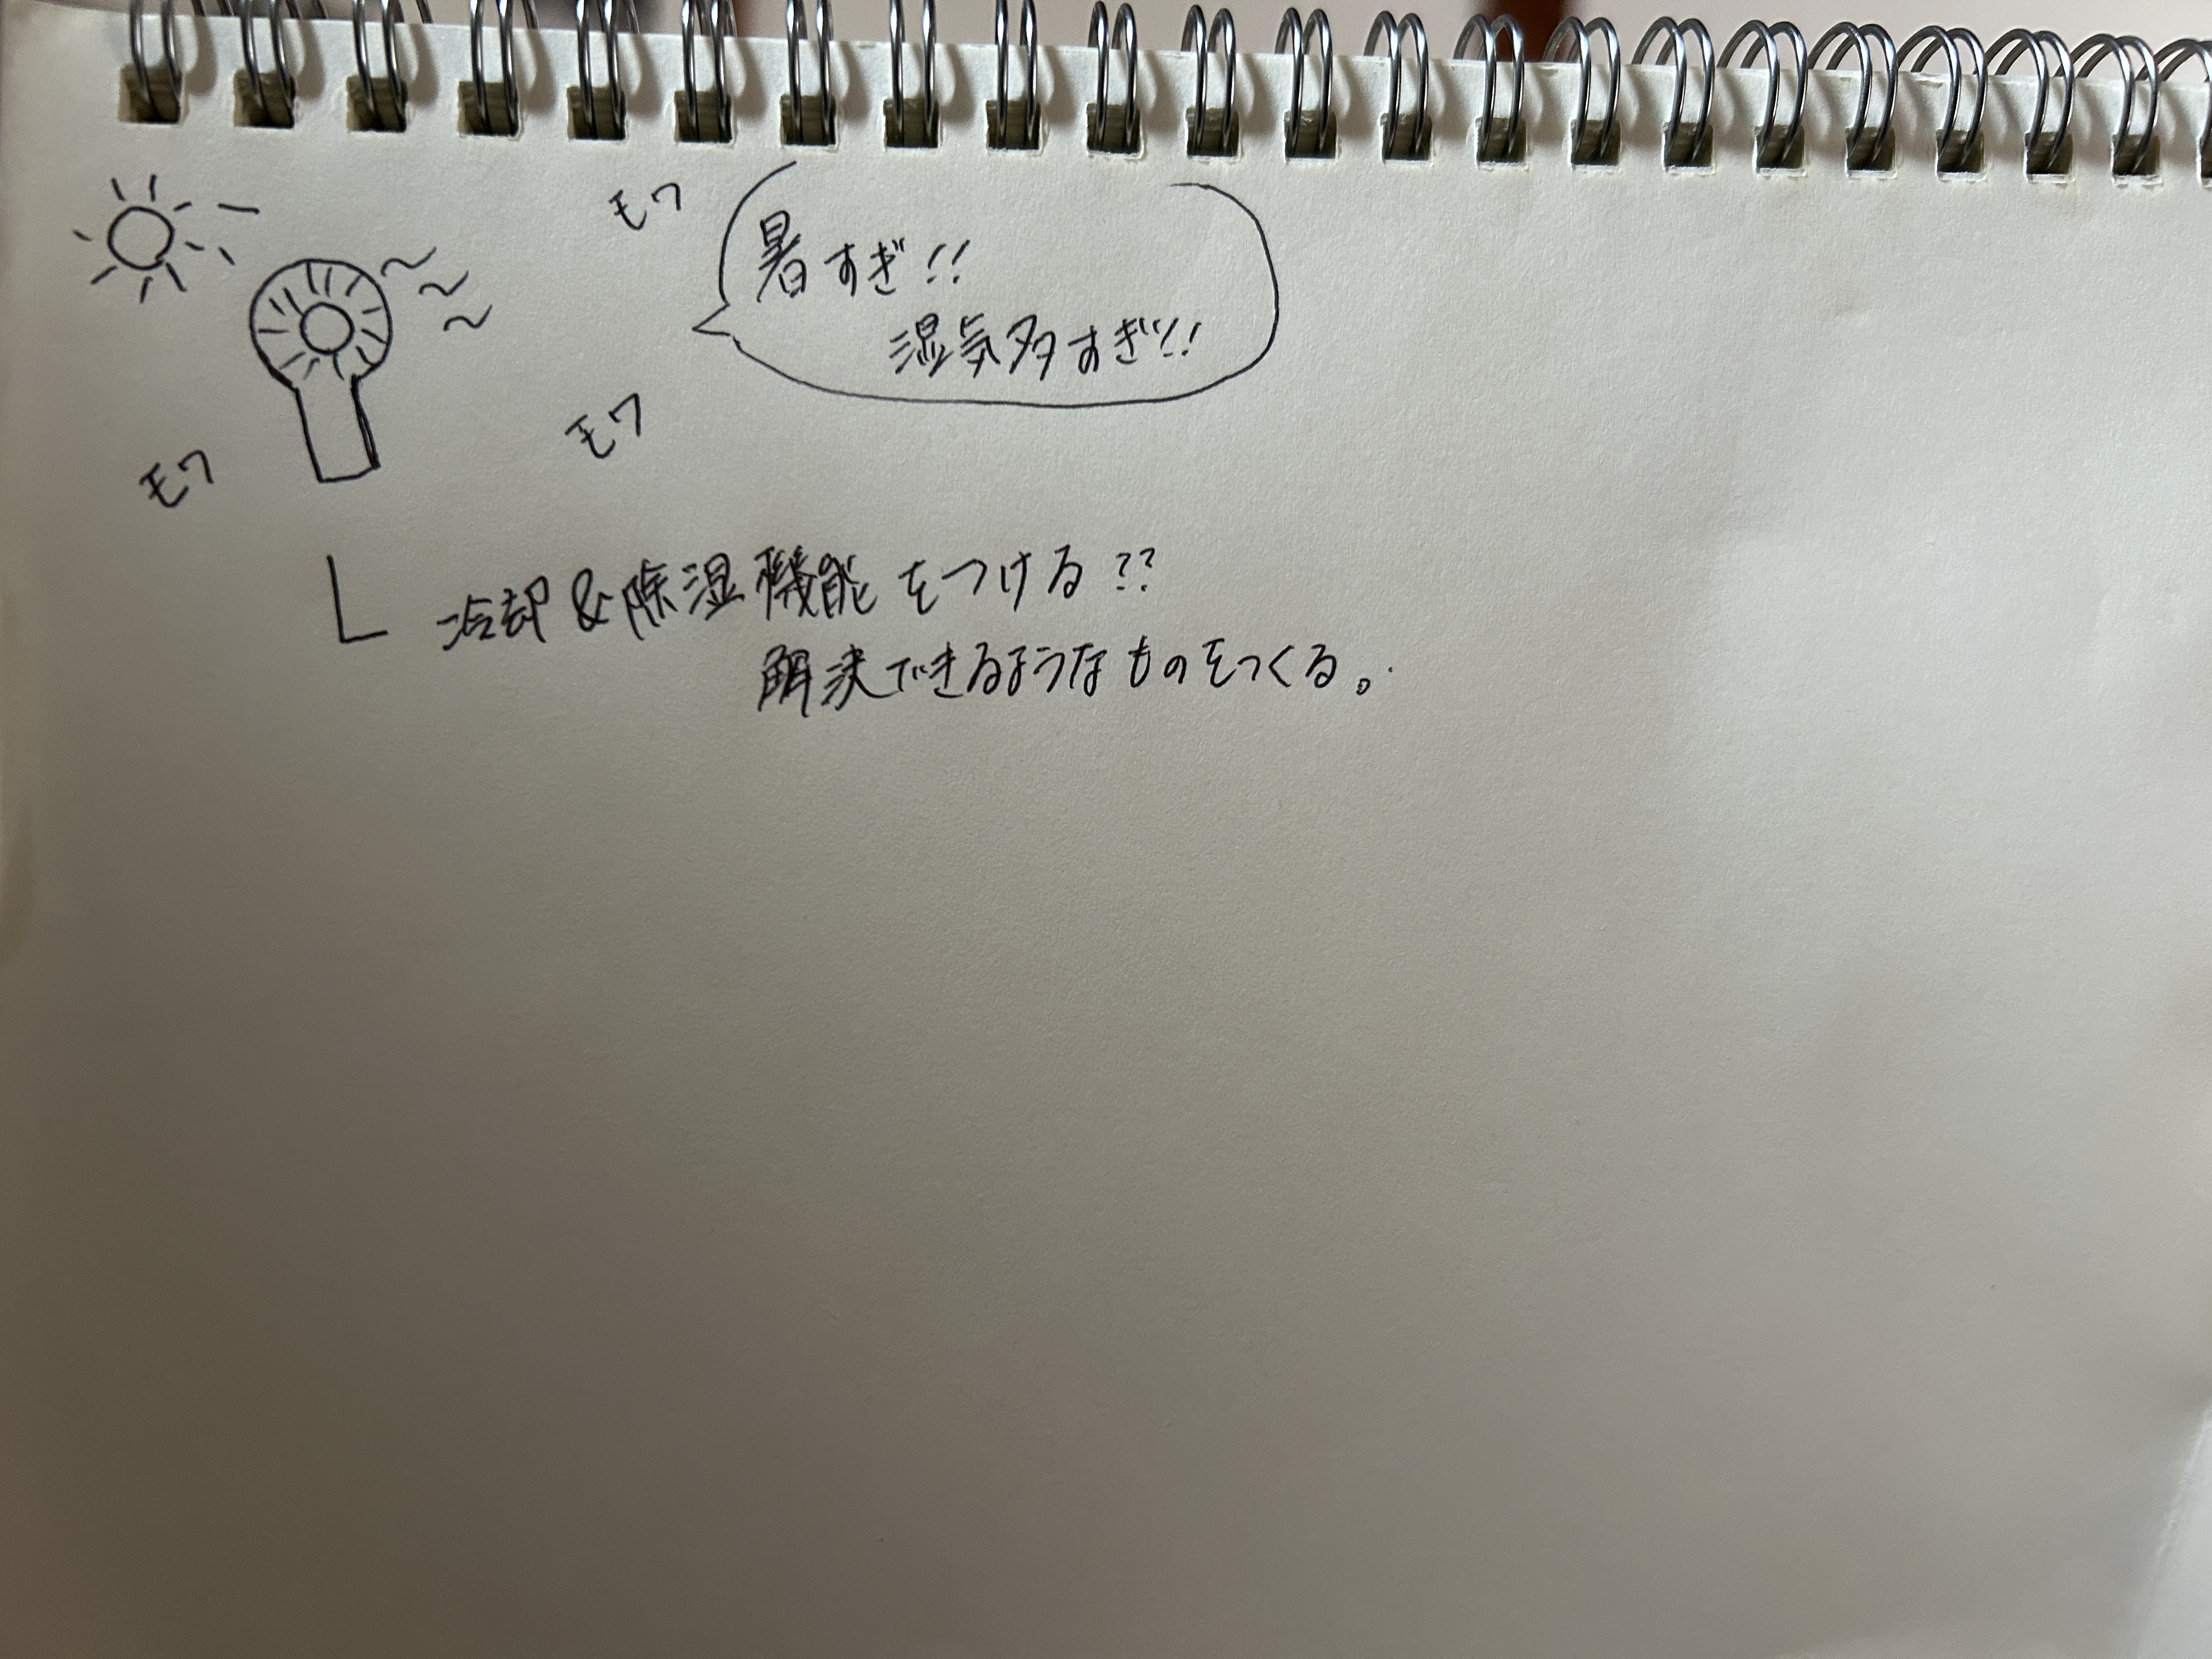 モワ
暑すぎ!!
湿気多すぎ!!
モワ
モワ
冷却&除湿機能をつける??
解決できるようなものをつくる。